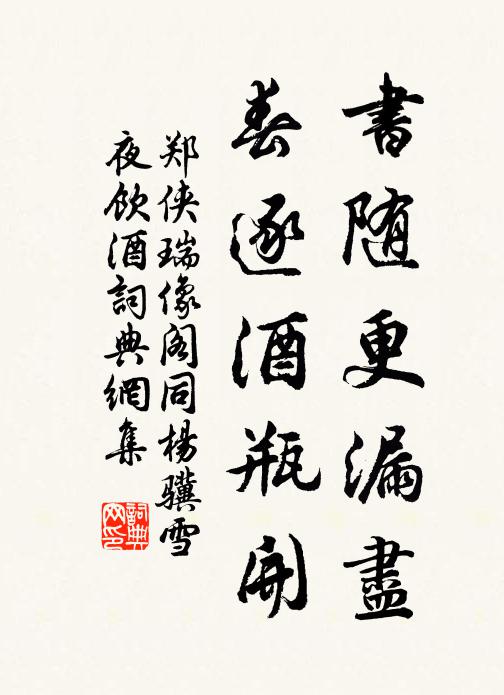 書随更漏盡
春逐酒瓶開
郑侠瑞像阁同楊骥雪
夜飲酒詞典網集
詞典网印